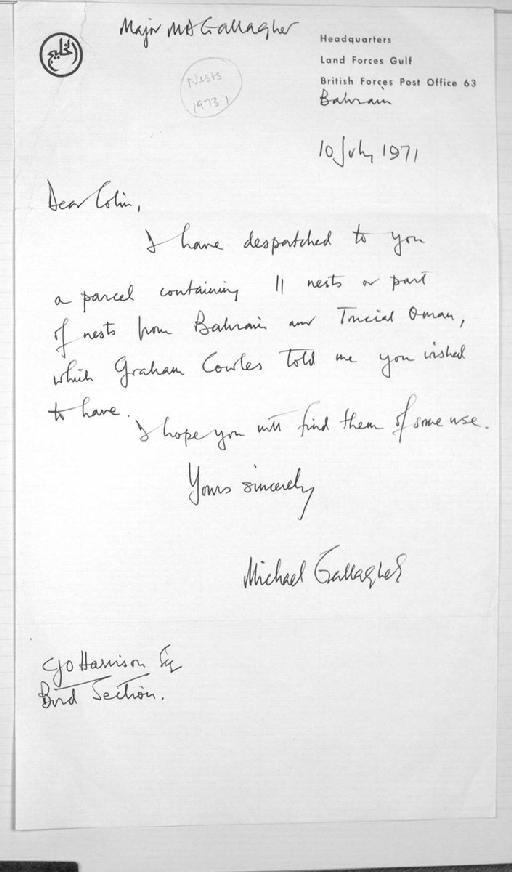 الخليج
Major MD Gallagher
Headquarters
Land Forces Gulf
British Forces Post Office 63
Bahrain
Nests
1973 1
10 July 1971
Dear Colin,
I have despatched to you
a parcel containing 11 nests or part
of nests from Bahrain and Trucial Oman,
which Graham Cowles told me you wished
to have.
I hope you will find them of some use.
Yours sincerely
Michael Gallagher
CJO Harrison Esq
Bird Section.